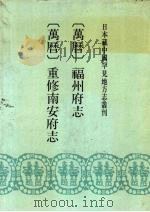 日本藏中國罕見地方志叢刊
〔萬曆〕福州府志
〔萬曆〕重修南安府志